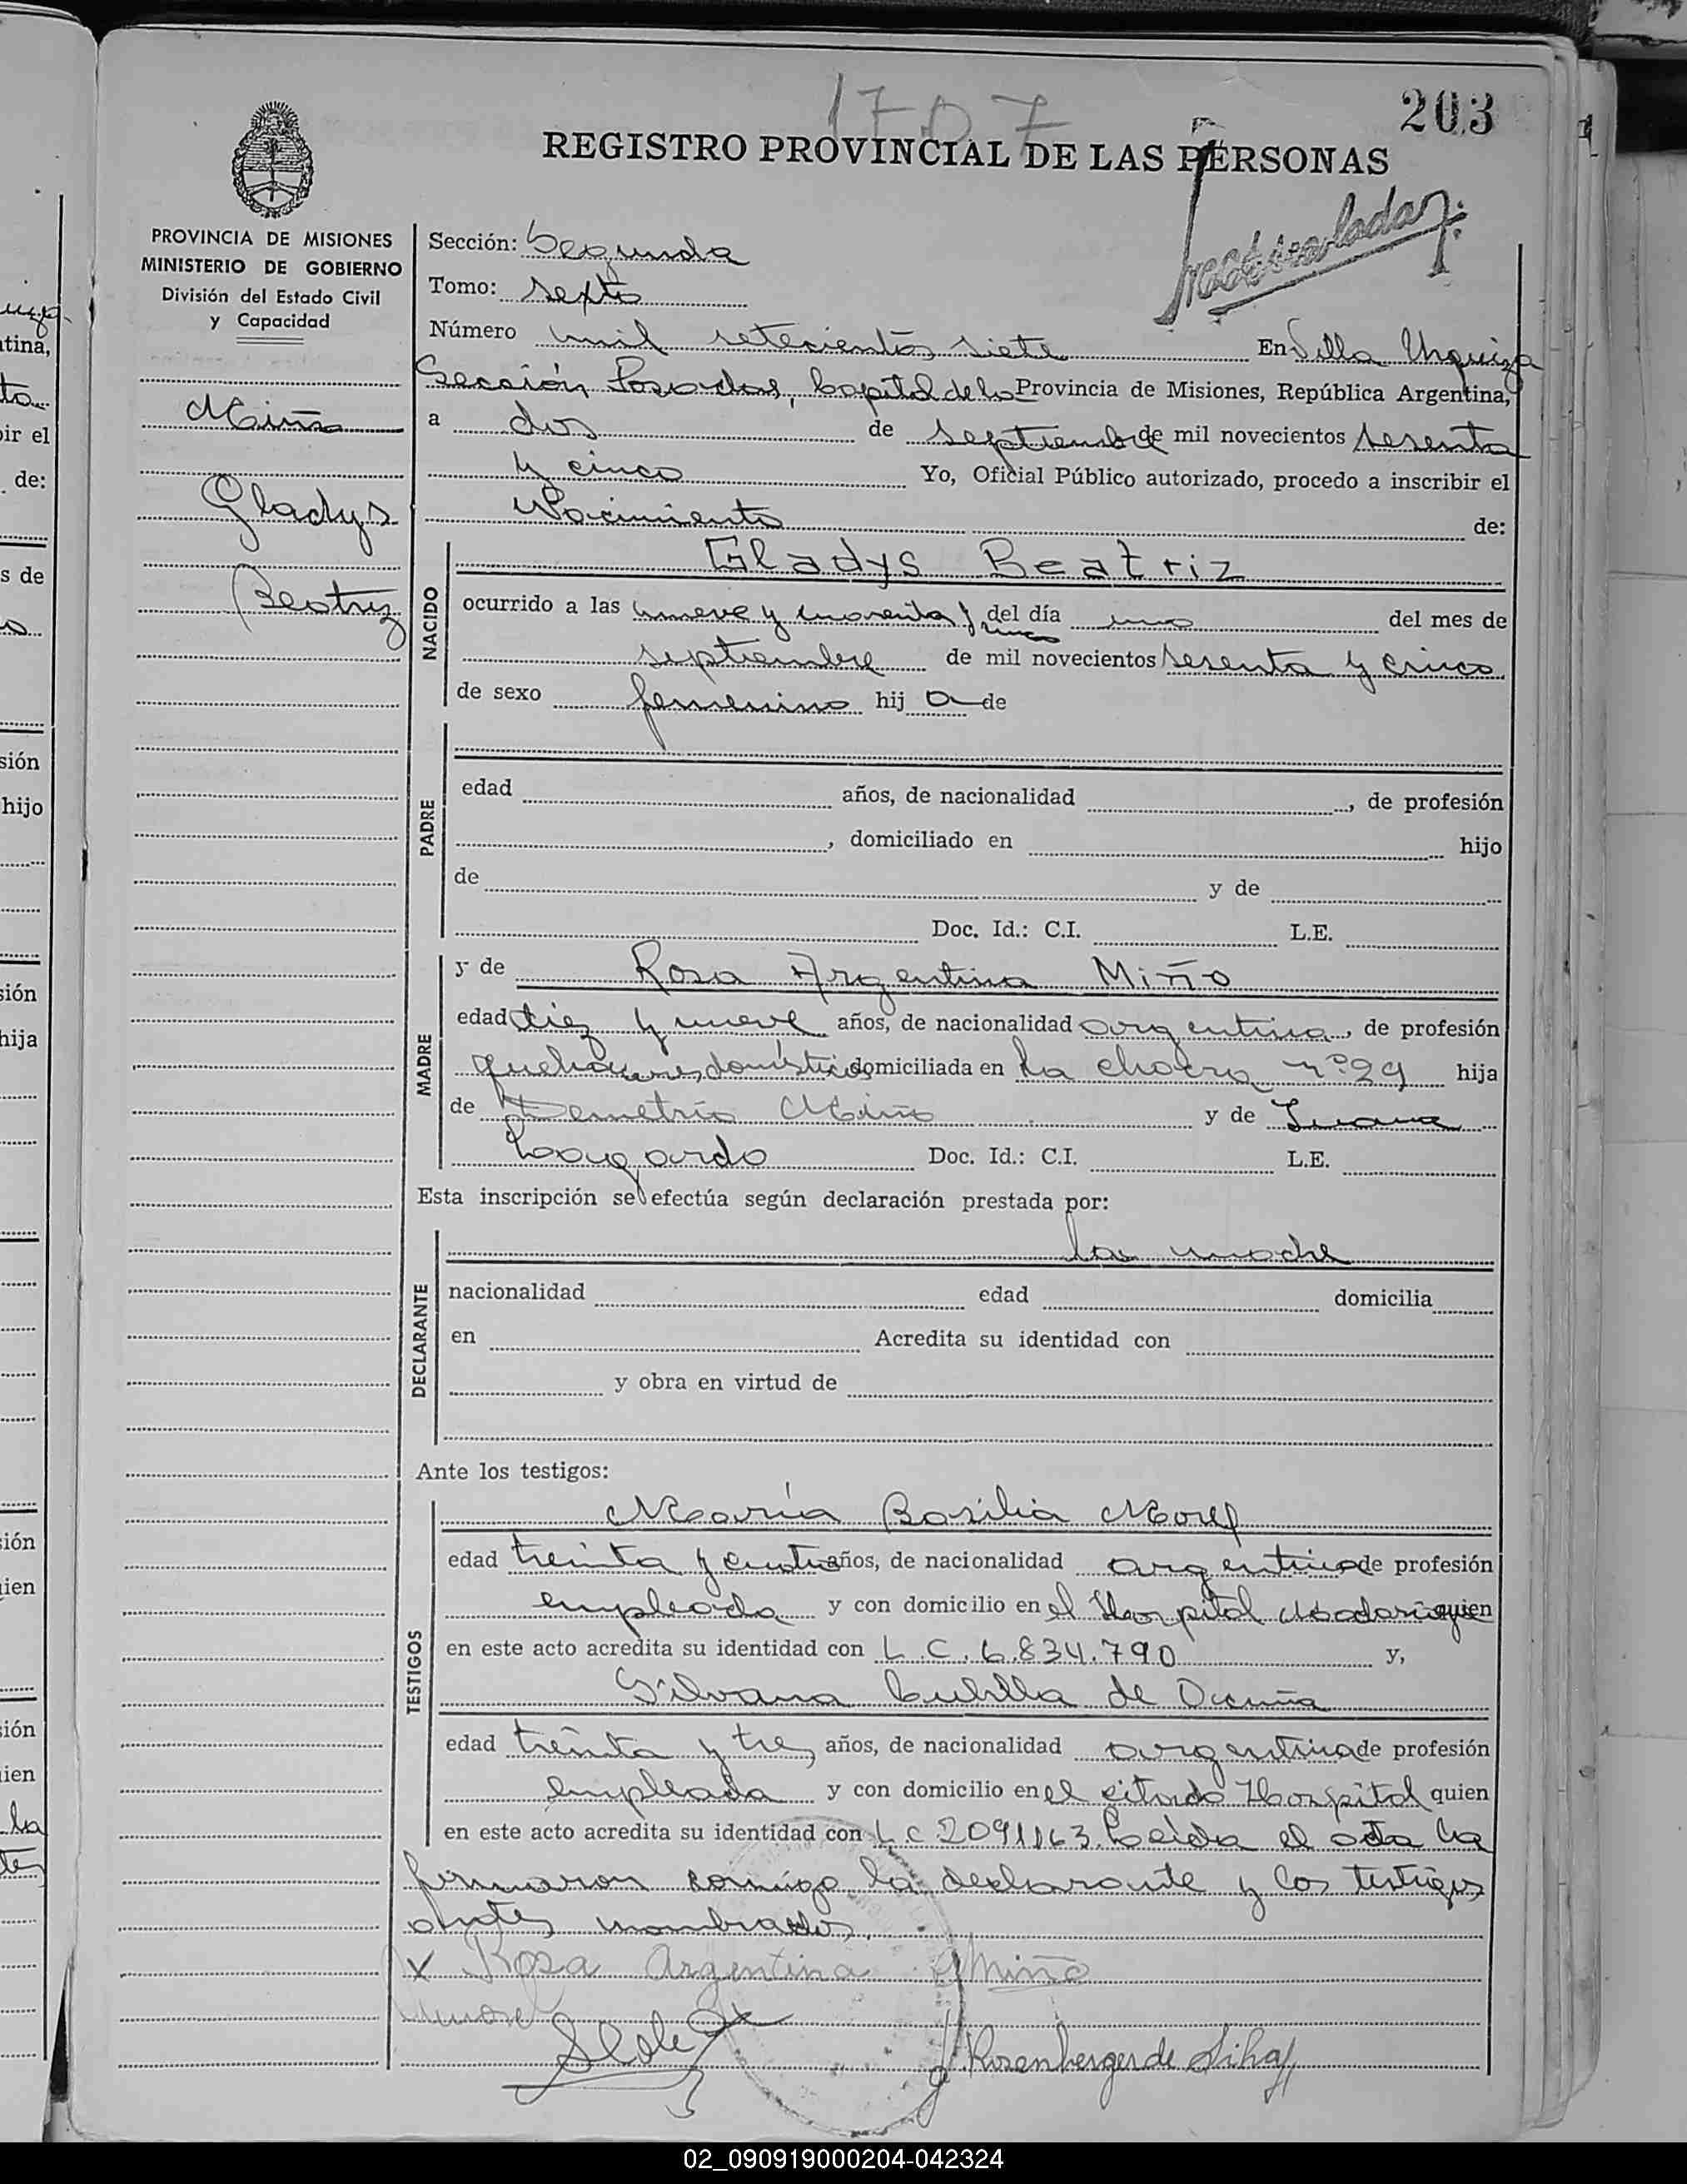 1707
203
REGISTRO PROVINCIAL DE LAS PERSONAS
PROVINCIA DE MISIONES
MINISTERIO DE GOBIERNO
División del Estado Civil
y Capacidad
Miño
Gladys
Beatriz
Sección: Segunda
Tomo: sexto
Número mil setecientos siete En Villa Urquiza
Sección Posadas, Capital de la Provincia de Misiones, República Argentina,
a dos de septiembre de mil novecientos sesenta
y cinco Yo, Oficial Público autorizado, procedo a inscribir el
Nacimiento de:
NACIDO
Gladys Beatriz
ocurrido a las nueve y cuarenta y cinco del día uno del mes de
septiembre de mil novecientos sesenta y cinco
de sexo femenino hij a de
PADRE
edad años, de nacionalidad , de profesión
, domiciliado en hijo
de y de
Doc. Id.: C.I. L.E.
MADRE
y de Rosa Argentina Miño
edad diez y nueve años, de nacionalidad argentina, de profesión
quehaceres domésticos domiciliada en la chacra nº 29 hija
de Demetrio Miño y de Juana
Doc. Id.: C.I. L.E.
Esta inscripción se efectúa según declaración prestada por:
DECLARANTE
la madre
nacionalidad edad domicilia
en Acredita su identidad con
y obra en virtud de
Ante los testigos:
TESTIGOS
María Basilia Morel
edad treinta y cuatro años, de nacionalidad argentina de profesión
empleada y con domicilio en el Hospital Madariaga quien
en este acto acredita su identidad con L.C. 6.834.790 y,
Silvana Cubilla de Ocuña
edad treinta y tres años, de nacionalidad argentina de profesión
empleada y con domicilio en el citado Hospital quien
en este acto acredita su identidad con L.C 2091163. Leída el acta la
firmaron conmigo la declarante y los testigos
antes nombrados.
x Rosa Argentina Miño
J. Rosenberger de Silva
02_090919000204-042324